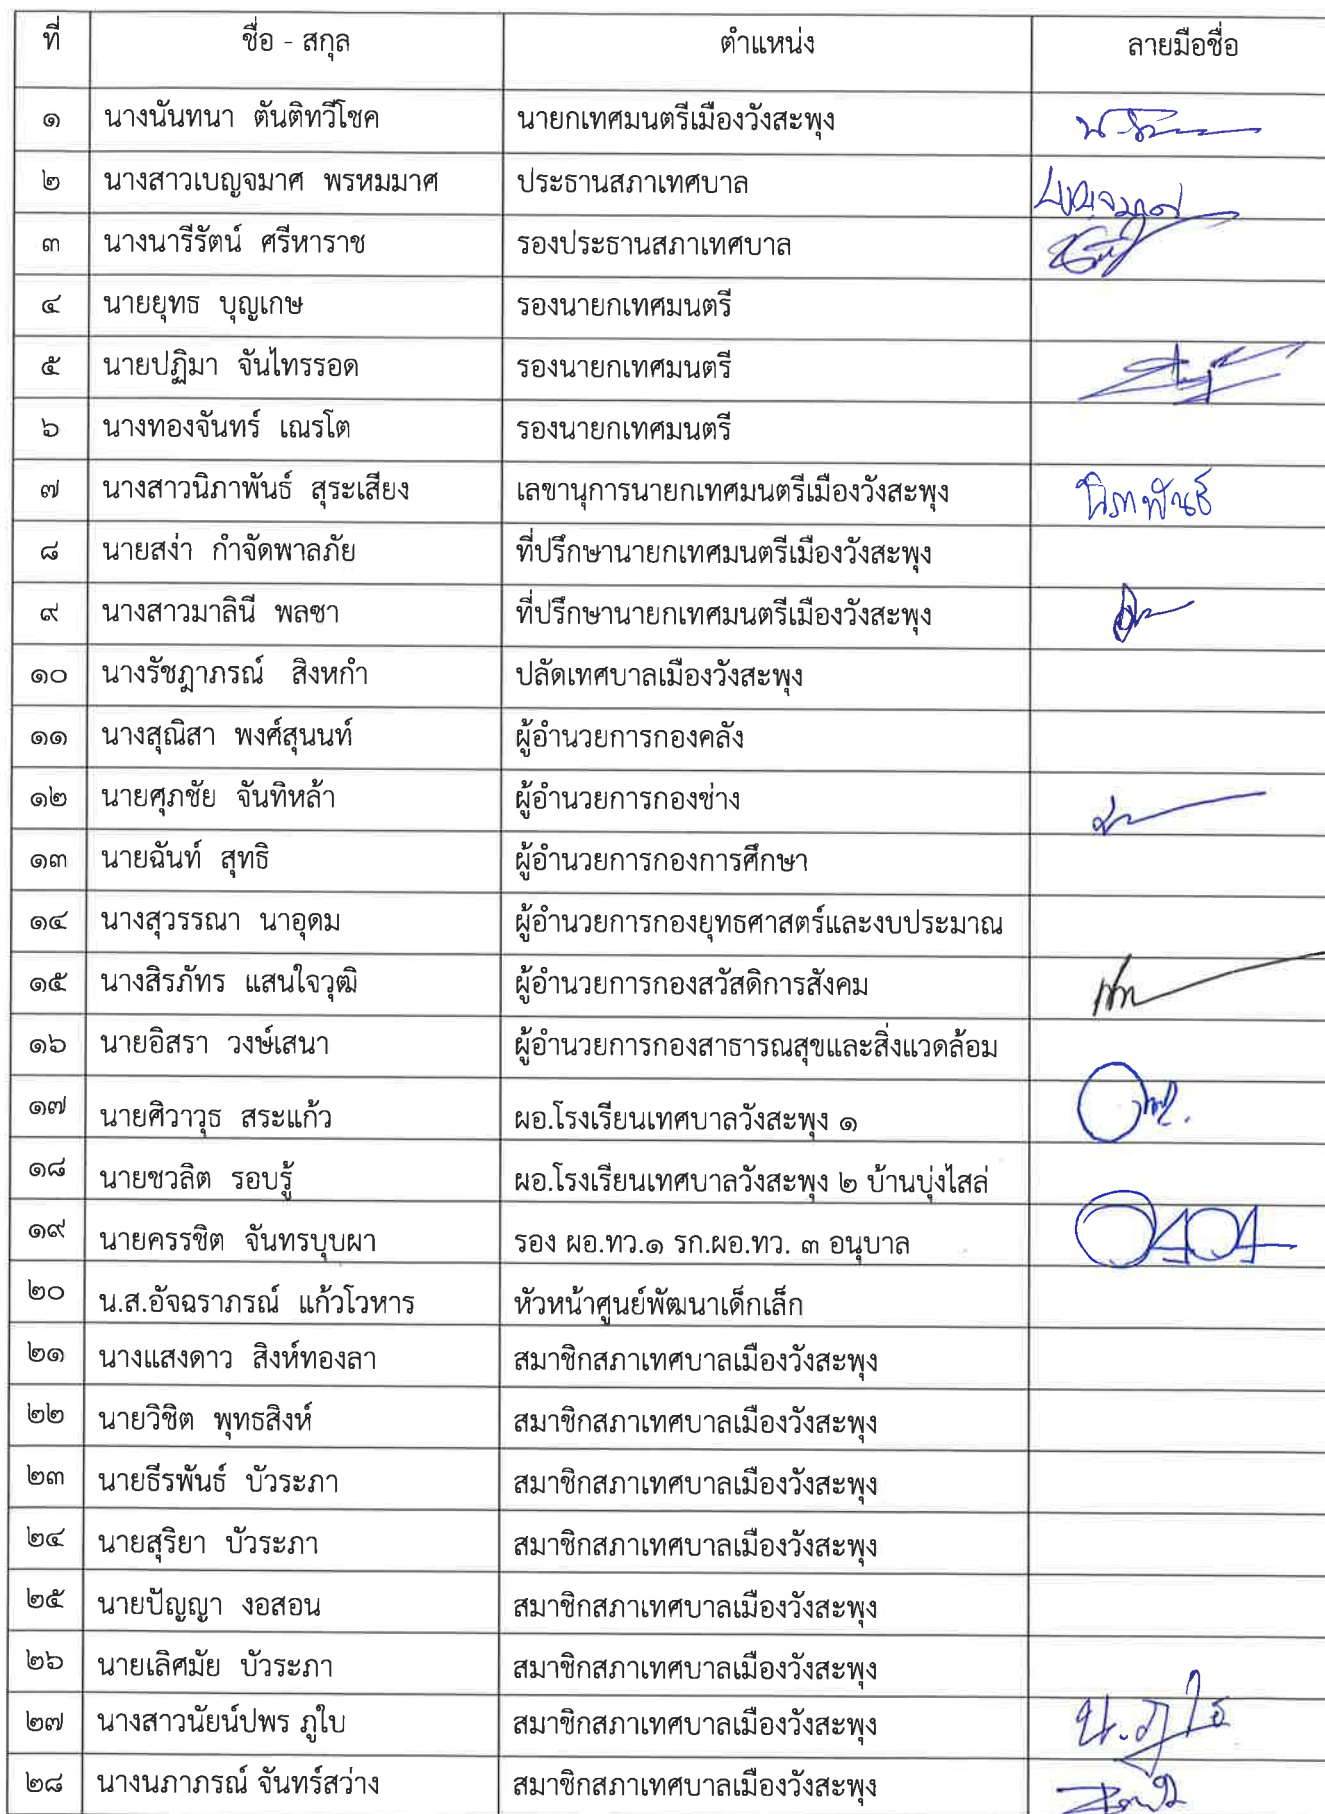 ที่ ชื่อ - สกุล ตำแหน่ง ลายมือชื่อ
๑ นางนันทนา ตันติทวีโชค นายกเทศมนตรีเมืองวังสะพุง
๒ นางสาวเบญจมาศ พรหมมาศ ประธานสภาเทศบาล เบญจมาศ
๓ นางนารีรัตน์ ศรีหาราช รองประธานสภาเทศบาล
๔ นายยุทธ บุญเกษ รองนายกเทศมนตรี
๕ นายปฏิมา จันไทรรอด รองนายกเทศมนตรี
๖ นางทองจันทร์ เณรโต รองนายกเทศมนตรี
๗ นางสาวนิภาพันธ์ สุระเสียง เลขานุการนายกเทศมนตรีเมืองวังสะพุง นิภาพันธ์
๘ นายสง่า กำจัดพาลภัย ที่ปรึกษานายกเทศมนตรีเมืองวังสะพุง
๙ นางสาวมาลินี พลซา ที่ปรึกษานายกเทศมนตรีเมืองวังสะพุง
๑๐ นางรัชฎาภรณ์ สิงหกำ ปลัดเทศบาลเมืองวังสะพุง
๑๑ นางสุณิสา พงศ์สุนนท์ ผู้อำนวยการกองคลัง
๑๒ นายศุภชัย จันทิหล้า ผู้อำนวยการกองช่าง
๑๓ นายฉันท์ สุทธิ ผู้อำนวยการกองการศึกษา
๑๔ นางสุวรรณา นาอุดม ผู้อำนวยการกองยุทธศาสตร์และงบประมาณ
๑๕ นางสิรภัทร แสนใจวุฒิ ผู้อำนวยการกองสวัสดิการสังคม
๑๖ นายอิสรา วงษ์เสนา ผู้อำนวยการกองสาธารณสุขและสิ่งแวดล้อม
๑๗ นายศิวาวุธ สระแก้ว ผอ.โรงเรียนเทศบาลวังสะพุง ๑
๑๘ นายชวลิต รอบรู้ ผอ.โรงเรียนเทศบาลวังสะพุง ๒ บ้านบุ่งไสล่
๑๙ นายครรชิต จันทรบุบผา รอง ผอ.ทว.๑ รก.ผอ.ทว. ๓ อนุบาล
๒๐ น.ส.อัจฉราภรณ์ แก้วโวหาร หัวหน้าศูนย์พัฒนาเด็กเล็ก
๒๑ นางแสงดาว สิงห์ทองลา สมาชิกสภาเทศบาลเมืองวังสะพุง
๒๒ นายวิชิต พุทธสิงห์ สมาชิกสภาเทศบาลเมืองวังสะพุง
๒๓ นายธีรพันธ์ บัวระภา สมาชิกสภาเทศบาลเมืองวังสะพุง
๒๔ นายสุริยา บัวระภา สมาชิกสภาเทศบาลเมืองวังสะพุง
๒๕ นายปัญญา งอสอน สมาชิกสภาเทศบาลเมืองวังสะพุง
๒๖ นายเลิศมัย บัวระภา สมาชิกสภาเทศบาลเมืองวังสะพุง
๒๗ นางสาวนัยน์ปพร ภูใบ สมาชิกสภาเทศบาลเมืองวังสะพุง
๒๘ นางนภาภรณ์ จันทร์สว่าง สมาชิกสภาเทศบาลเมืองวังสะพุง